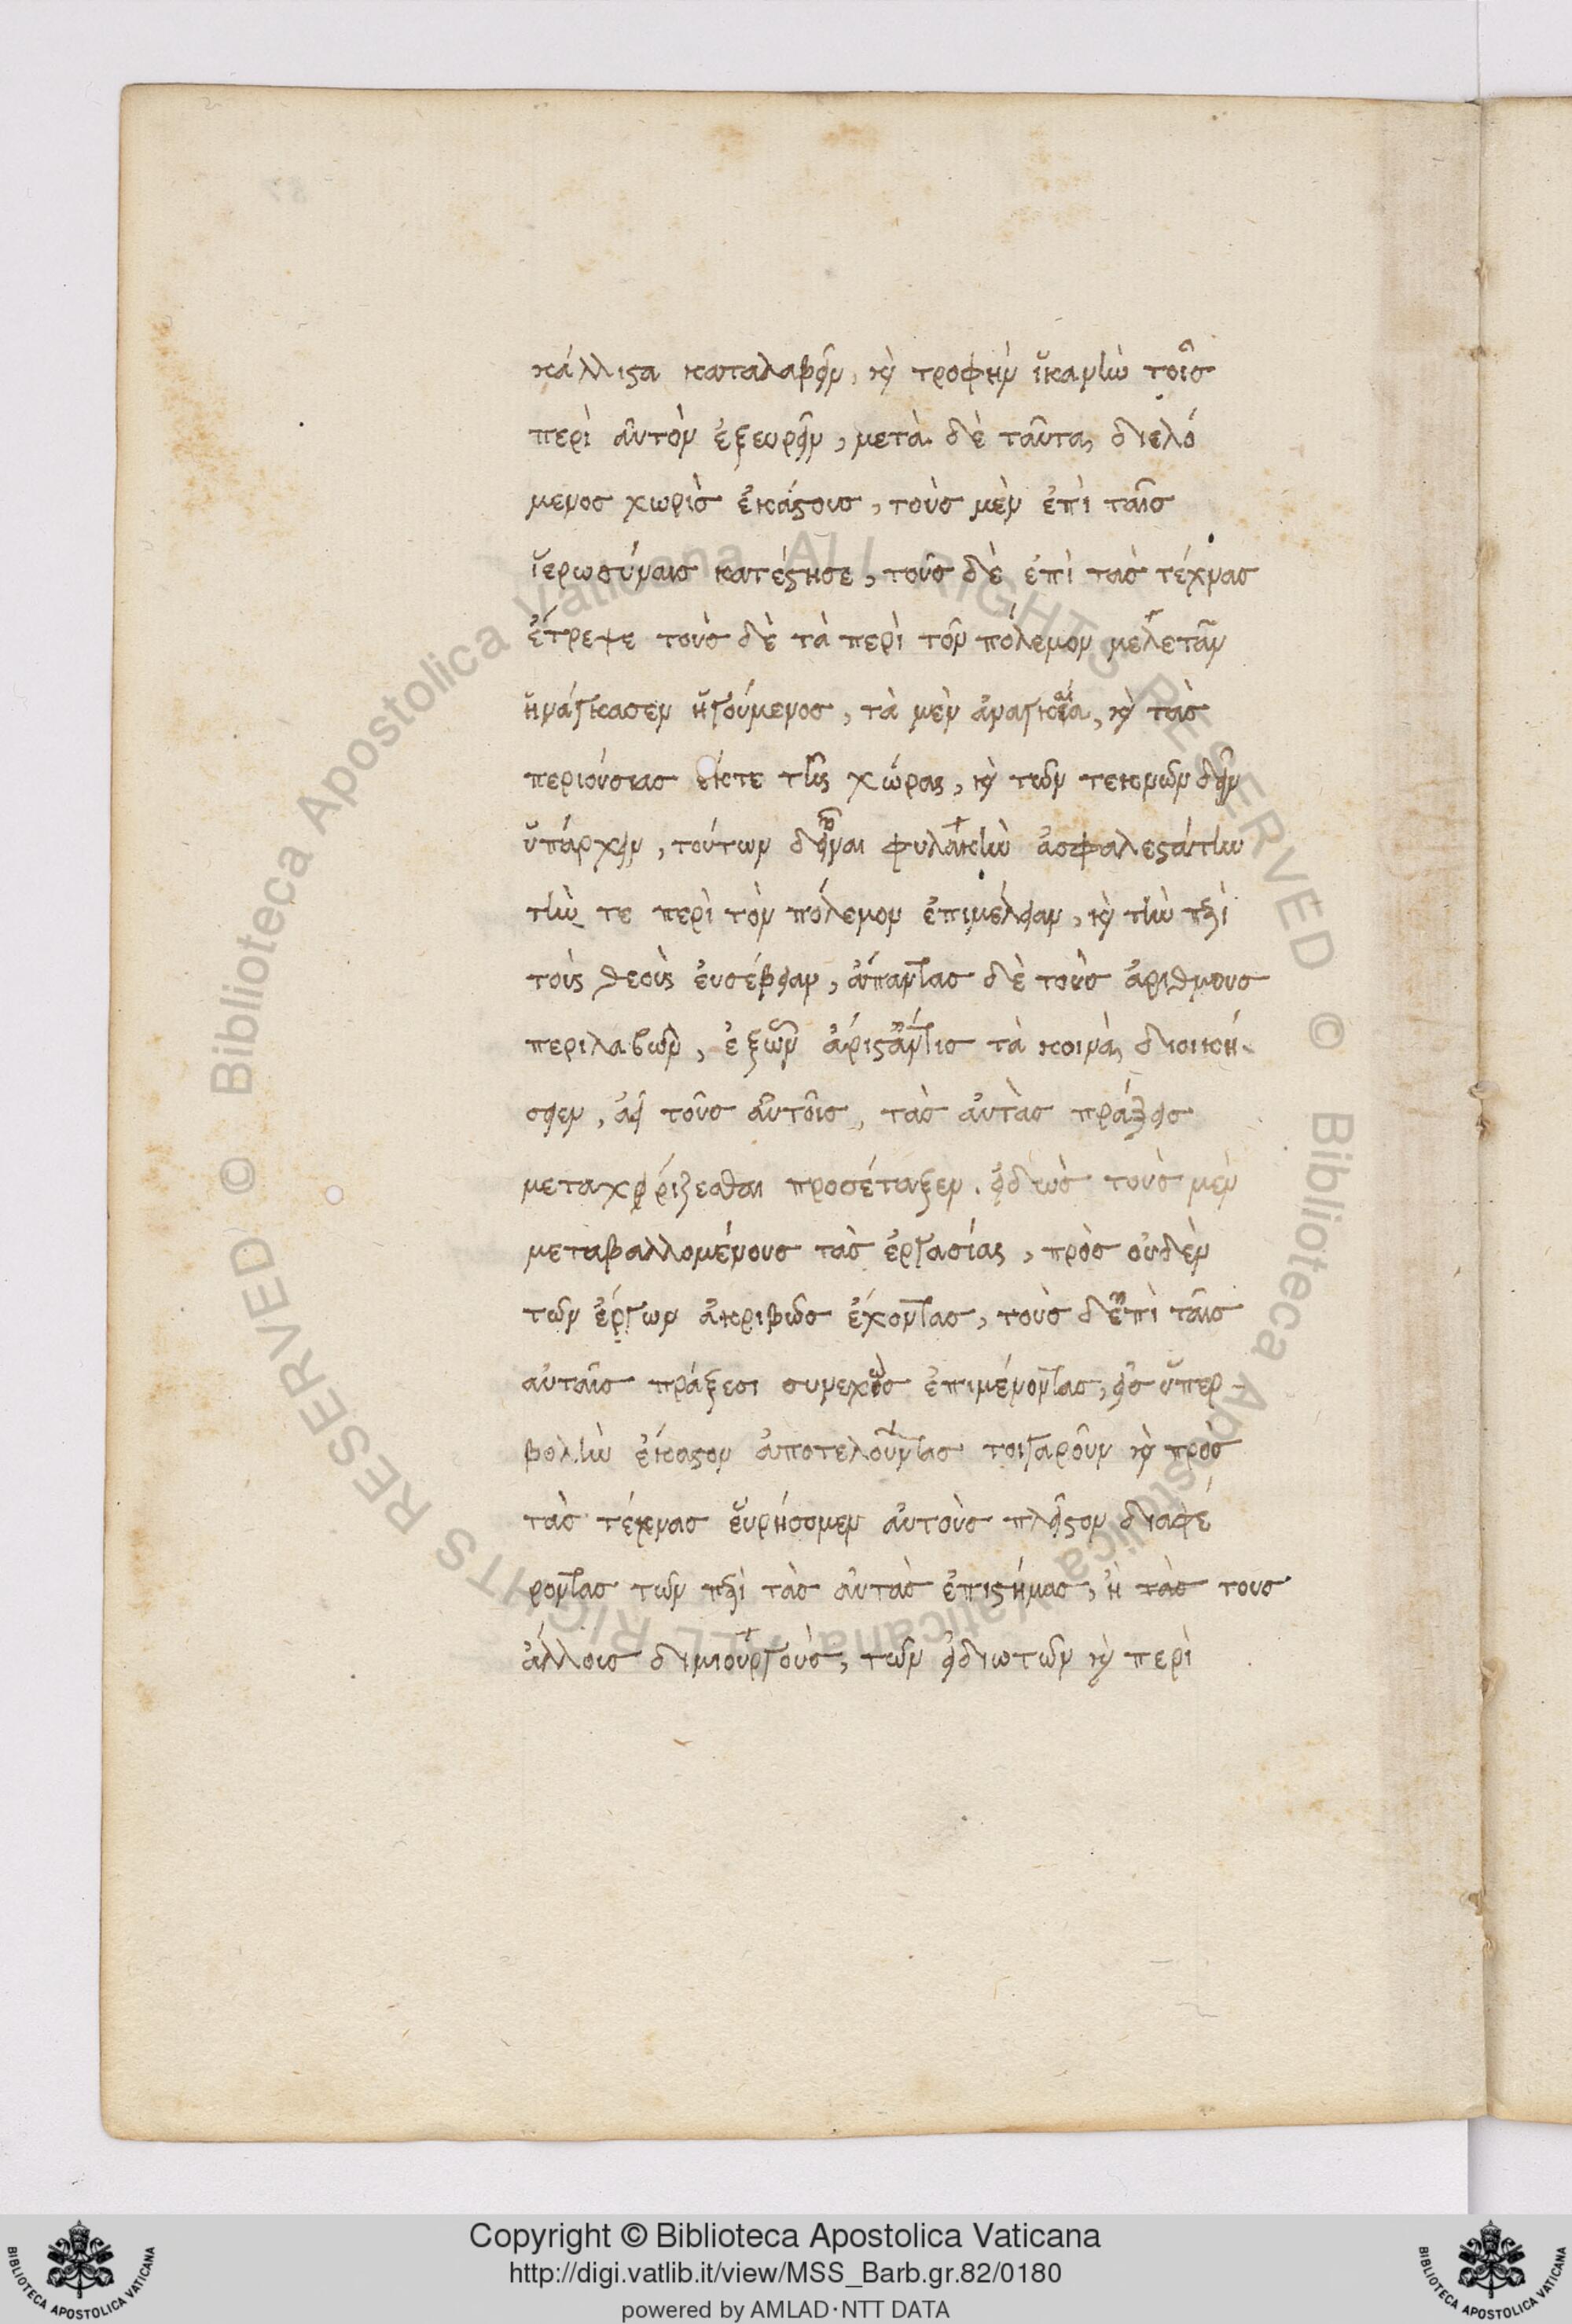 κάλλιστα καταλαβεῖν, καὶ τροφὴν ἱκανὴν τοῖς
περὶ αὐτὸν ἐξευρεῖν, μετὰ δὲ ταῦτα, διελό
μενος χωρὶς ἑκάστους, τοὺς μὲν ἐπὶ ταῖς
ἱερωσύναις κατέστησε, τοὺς δὲ ἐπὶ τὰς τέχνας
ἔτρεψε τοὺς δὲ τὰ περὶ τὸν πόλεμον μελετᾶν
ἠνάγκασεν ἡγούμενος, τὰ μὲν ἀναγκαῖα, καὶ τὰς
περιούσιας ἔκτε τῆς χώρας, καὶ τῶν τεχνῶν δεῖν
ὑπάρχειν, τούτων δὲ εἶναι φυλακὴν ἀσφαλεστάτην
τήν τε περὶ τὸν πόλεμον ἐπιμέλειαν, καὶ τὴν περὶ
τοὺς θεοὺς εὐσέβειαν, ἅπαντας δὲ τοὺς ἀριθμους
περιλαβὼν, ἐξ ὧν ἄριστ' ἄν τις τὰ κοινὰ, διοική-
σειεν, ἀεὶ τοῦς αὐτοῖς, τὰς αὐτὰς πράξεις
μεταχειρίζεσθαι προσέταξεν. εἰδὼς τοὺς μὲν
μεταβαλλομένους τὰς ἐργασίας, πρὸς οὐδὲν
τῶν ἔργων ἀκριβῶς ἔχοντας, τοὺς δ' ἐπὶ ταῖς
αὐταῖς πράξεσι συνεχῶς ἐπιμένοντας, εἰς ὑπερ-
βολὴν ἕκαστον ἀποτελοῦντας τοιγαροῦν καὶ πρὸς
τὰς τέχνας εὑρήσομεν αὐτοὺς πλεῖστον διαφέ
ροντας τῶν περὶ τὰς αὐτὰς ἐπιστήμας, ἢ τὰς τους
ἄλλους διμιουργοὺς, τῶν εἰδιωτῶν καὶ περὶ
Copyright © Biblioteca Apostolica Vaticana
http://digi.vatlib.it/view/MSS_Barb.gr.82/0180
powered by AMLAD·NTT DATA